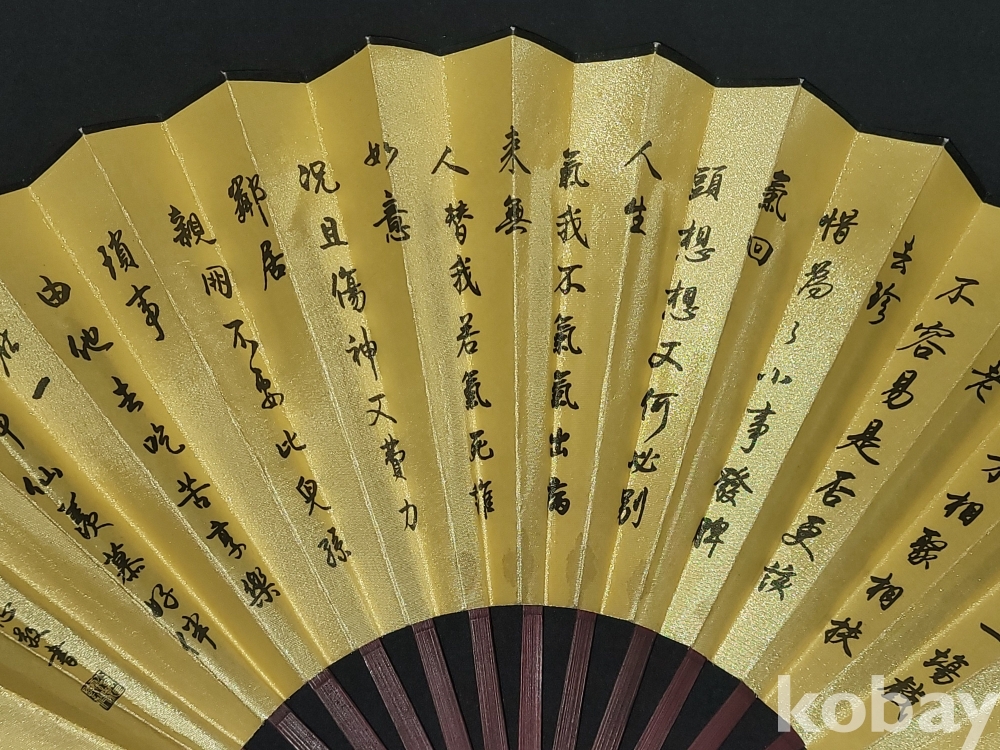 一場戲
才相聚相扶
老
不容易是否更該
去珍
惜為了小事發脾
氣回
頭想想又何必別
人生
氣我不氣氣出病
來無
人替我若氣死誰
如意
況且傷神又費力
鄰居
親朋不要比兒孫
瑣事
由他去吃苦享樂
在一
神仙羨慕好伴
敬書
kobay